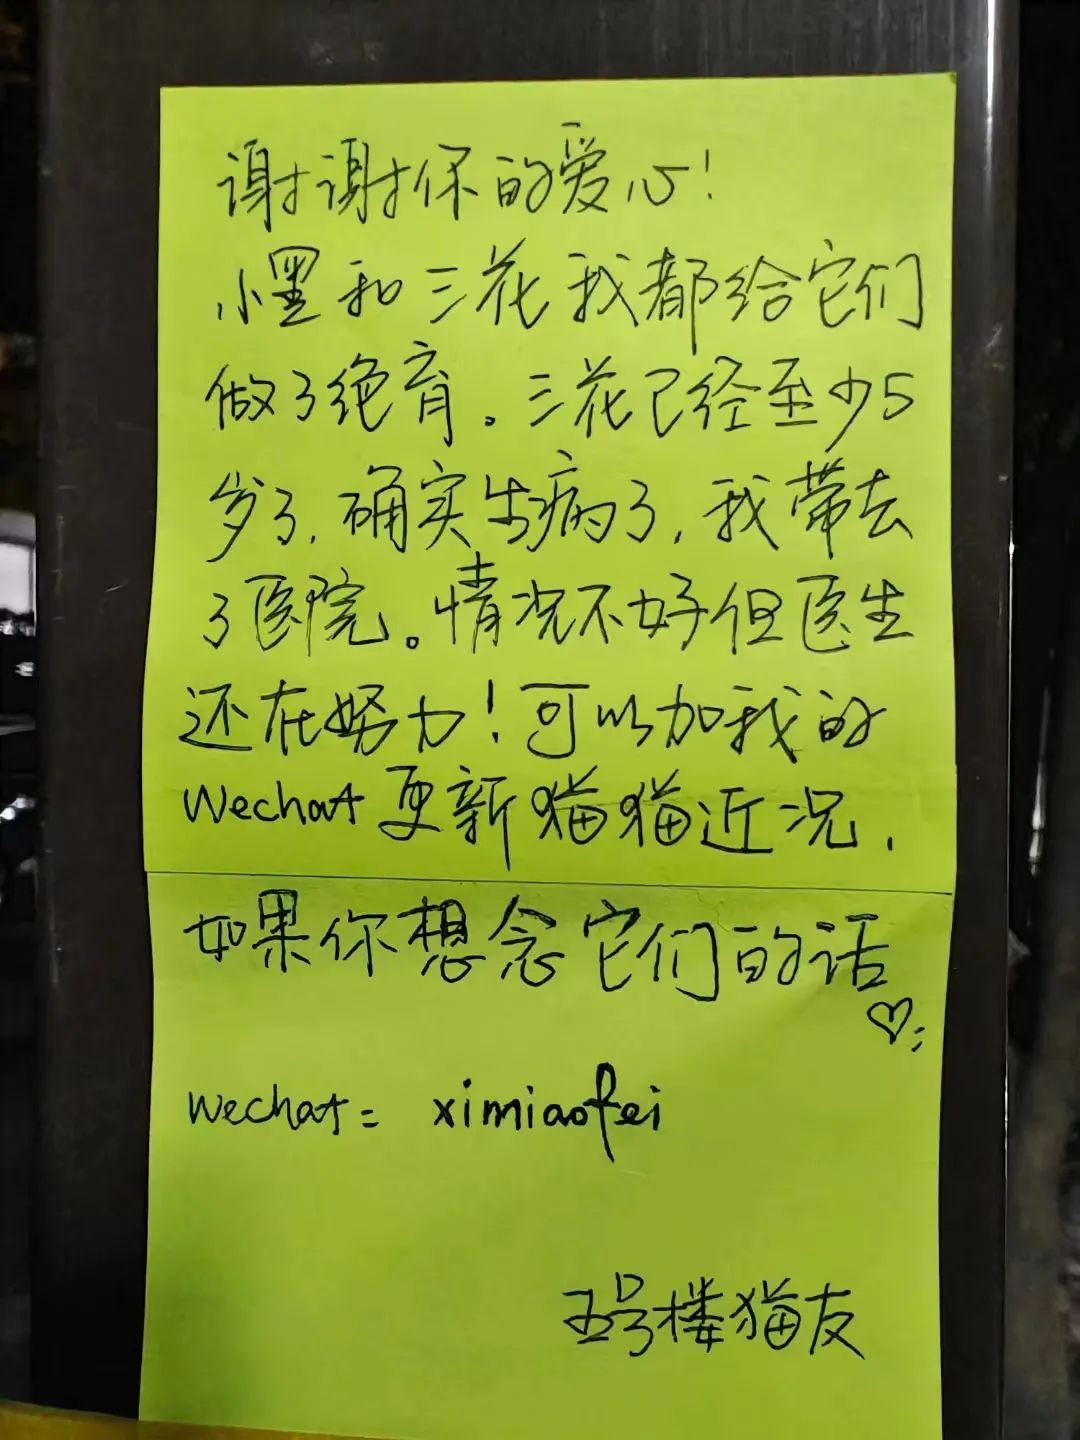 谢谢你的爱心！
小黑和三花我都给它们
做了绝育。三花已经至少5
岁了，确实生病了，我带去
了医院。情况不好但医生
还在努力！可以加我的
Wechat更新猫猫近况，
如果你想念它们的话
♡；
wechat= ximiaofei
五号楼猫友